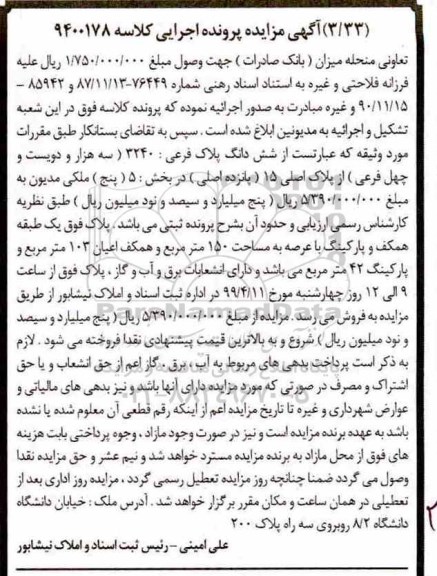 (۳/۳۳) آگهی مزایده پرونده اجرایی کلاسه ۹۴۰۰۱۷۸
تعاونی منحله میزان ( بانک صادرات ) جهت وصول مبلغ ۱/۷۵۰/۰۰۰/۰۰۰ ریال علیه
فرزانه فلاحتی و غیره به استناد اسناد رهنی شماره ۷۶۴۴۹-۸۷/۱۱/۱۳ و ۸۵۹۴۲ –
۹۰/۱۱/۱۵ و غیره مبادرت به صدور اجرائیه نموده که پرونده کلاسه فوق در این شعبه
تشکیل و اجرائیه به مدیونین ابلاغ شده است . سپس به تقاضای بستانکار طبق مقررات
مورد وثیقه که عبارتست از شش دانگ پلاک فرعی : ۳۲۴۰ ( سه هزار و دویست و
چهل فرعی ) از پلاک اصلی ۱۵ ( پانزده اصلی ) در بخش : ۵ ( پنج ) ملکی مدیون به
مبلغ ۵/۳۹۰/۰۰۰/۰۰۰ ریال ( پنج میلیارد و سیصد و نود میلیون ریال ) طبق نظریه
کارشناس رسمی ارزیابی و حدود آن بشرح پرونده ثبتی می باشد . پلاک فوق یک طبقه
همکف و پارکینگ با عرصه به مساحت ۱۵۰ متر مربع و همکف اعیان ۱۰۳ متر مربع و
پارکینگ ۴۲ متر مربع می باشد و دارای انشعابات برق و آب و گاز ، پلاک فوق از ساعت
۹ الی ۱۲ روز چهارشنبه مورخ ۹۹/۴/۱۱ در اداره ثبت اسناد و املاک نیشابور از طریق
مزایده به فروش می رسد . مزایده از مبلغ ۵/۳۹۰/۰۰۰/۰۰۰ ریال ( پنج میلیارد و سیصد
و نود میلیون ریال ) شروع و به بالاترین قیمت پیشنهادی نقدا فروخته می شود . لازم
به ذکر است پرداخت بدهی های مربوط به آب ، برق ، گاز اعم از حق انشعاب و یا حق
اشتراک و مصرف در صورتی که مورد مزایده دارای آنها باشد و نیز بدهی های مالیاتی و
عوارض شهرداری و غیره تا تاریخ مزایده اعم از اینکه رقم قطعی آن معلوم شده یا نشده
باشد به عهده برنده مزایده است و نیز در صورت وجود مازاد ، وجوه پرداختی بابت هزینه
های فوق از محل مازاد به برنده مزایده مسترد خواهد شد و نیم عشر و حق مزایده نقدا
وصول می گردد ضمنا چنانچه روز مزایده تعطیل رسمی گردد ، مزایده روز اداری بعد از
تعطیلی در همان ساعت و مکان مقرر برگزار خواهد شد . آدرس ملک : خیابان دانشگاه
دانشگاه ۸/۲ روبروی سه راه پلاک ۲۰۰
علی امینی – رئیس ثبت اسناد و املاک نیشابور